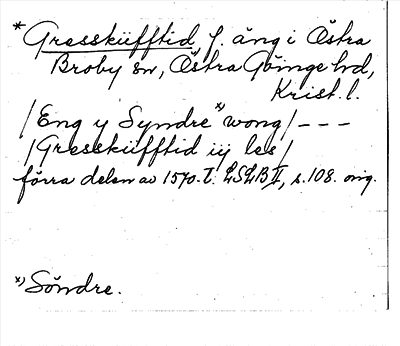 *Gresskiifftid, f. äng i Östra
Broby sn, Östra Göinge hd,
Krist. l.
/Eng y Syndre*) wong/ - - -
/Gresskiifftid iij les/
förra delen av 1570-t. LSLB II, s. 108. orig.
*) Söndre.